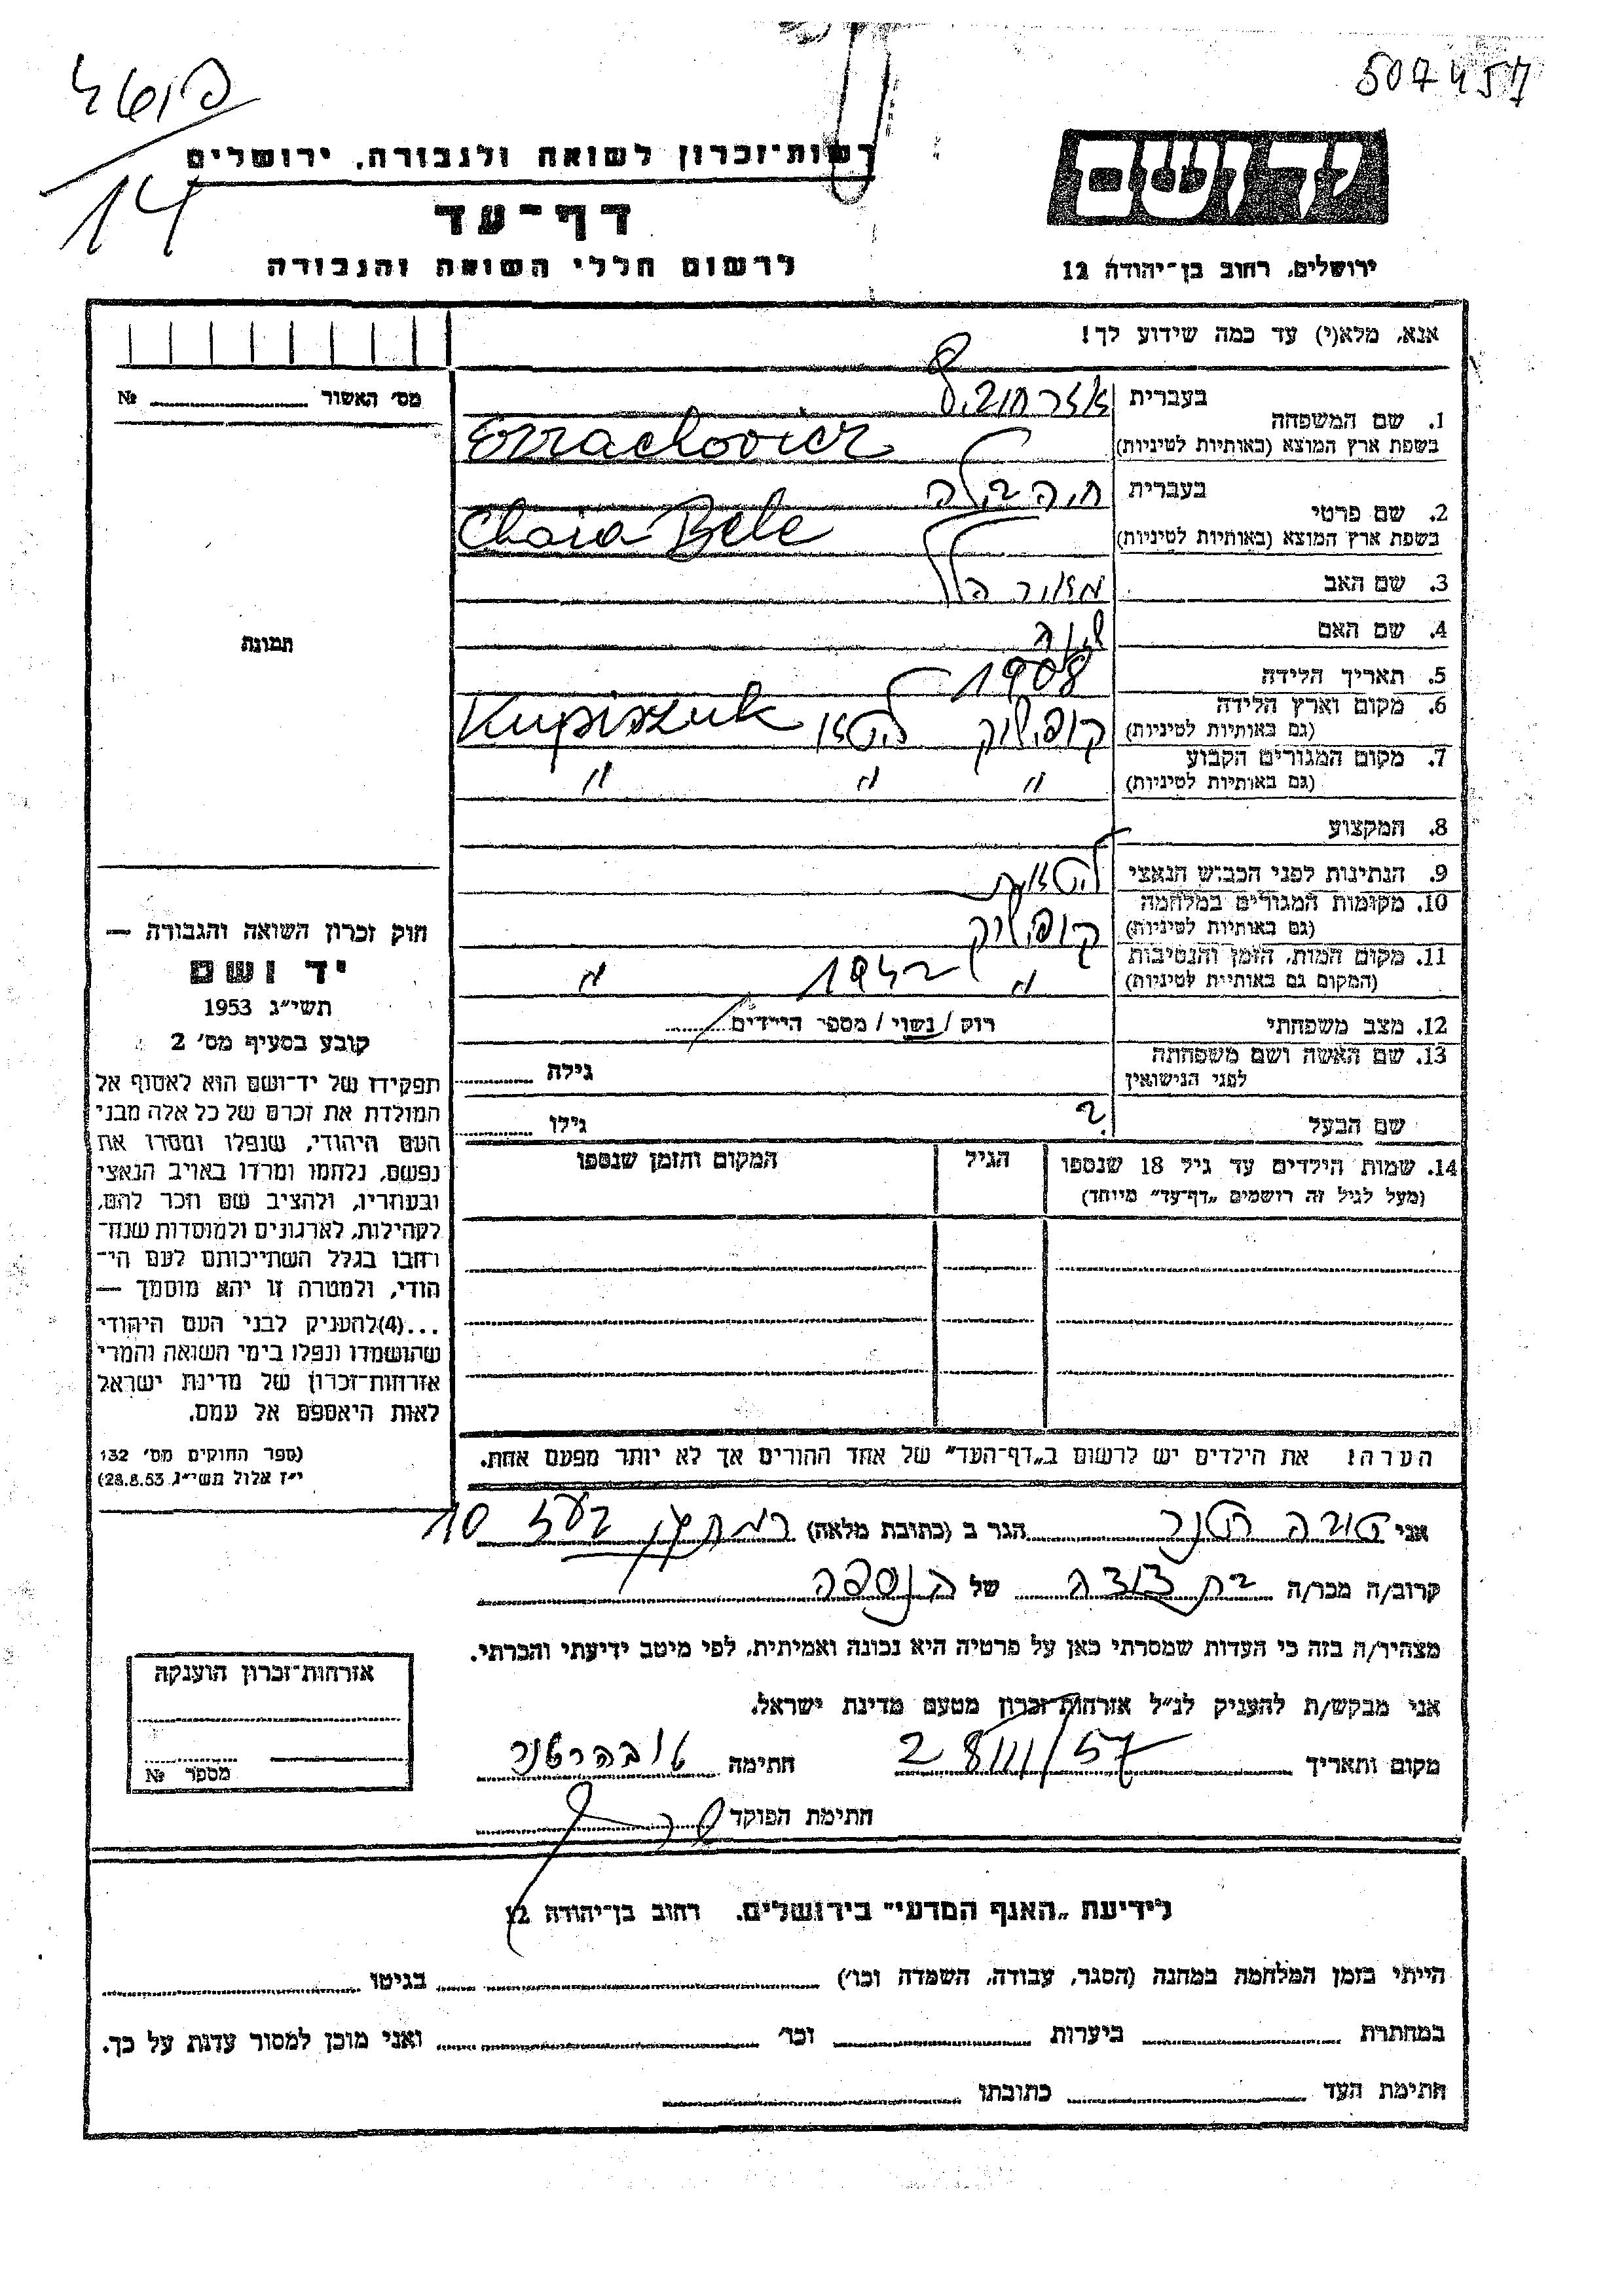 507457
14
רשות־זכרון לשואה ולגבורה, ירושלים
יד ושם
דף־עד
לרשום חללי השואה והגבורה
ירושלים, רחוב בן־יהודה 12
אנא, מלא(י) עד כמה שידוע לך!
מס׳ האשור № 
בעברית
1. שם המשפחה
בשפת ארץ המוצא (באותיות לטיניות) Ezrachovicz
בעברית חיה בילה
2. שם פרטי
בשפת ארץ המוצא (באותיות לטיניות) Chaia Bele
3. שם האב
4. שם האם
תמונה
5. תאריך הלידה 1908
6. מקום וארץ הלידה
(גם באותיות לטיניות) קופישוק ליטא Kupiszuk
7. מקום המגורים הקבוע
(גם באותיות לטיניות) " " "
8. המקצוע
9. הנתינות לפני הכבוש הנאצי ליטאית
10. מקומות המגורים במלחמה
(גם באותיות לטיניות) קופישוק
11. מקום המות, הזמן והנסיבות
(המקום גם באותיות לטיניות) " 1942 "
12. מצב משפחתי רווק / נשוי / מספר הילדים
13. שם האשה ושם משפחתה
לפני הנישואין גילה
שם הבעל ? גילו
חוק זכרון השואה והגבורה —
יד ושם
תשי״ג 1953
קובע בסעיף מס׳ 2
תפקידו של יד־ושם הוא לאסוף אל
המולדת את זכרם של כל אלה מבני
העם היהודי, שנפלו ומסרו את
נפשם, נלחמו ומרדו באויב הנאצי
ובעוזריו, ולהציב שם וזכר להם,
לקהילות, לארגונים ולמוסדות שנח־
רחבו בגלל השתייכותם לעם הי־
הודי, ולמטרה זו יהא מוסמך —
...(4)להעניק לבני העם היהודי
שהושמדו ונפלו בימי השואה והמרי
אזרחות־זכרון של מדינת ישראל
לאות היאספם אל עמם.
(ספר החוקים מס׳ 132
י״ז אלול תשי״ג 28.8.53)
14. שמות הילדים עד גיל 18 שנספו הגיל המקום והזמן שנספו
(מעל לגיל זה רושמים „דף־עד״ מיוחד)
הערה! את הילדים יש לרשום ב„דף־העד״ של אחד ההורים אך לא יותר מפעם אחת.
אני טובה רטנר הגר ב (כתובת מלאה) רמת גן 10
קרוב/ה מכר/ה בת דודה של הנספה
מצהיר/ה בזה כי העדות שמסרתי כאן על פרטיה היא נכונה ואמיתית, לפי מיטב ידיעתי והכרתי.
אני מבקש/ת להעניק לנ״ל אזרחות־זכרון מטעם מדינת ישראל.
מקום ותאריך 28/III/57 חתימה טובה רטנר
חתימת הפוקד
אזרחות־זכרון הוענקה
מספר №
לידיעת „האגף המדעי״ בירושלים, רחוב בן־יהודה 12
הייתי בזמן המלחמה במחנה (הסגר, עבודה, השמדה וכו׳) בגיטו
במחתרת ביערות וכו׳ ואני מוכן למסור עדות על כך.
חתימת העד כתובתו